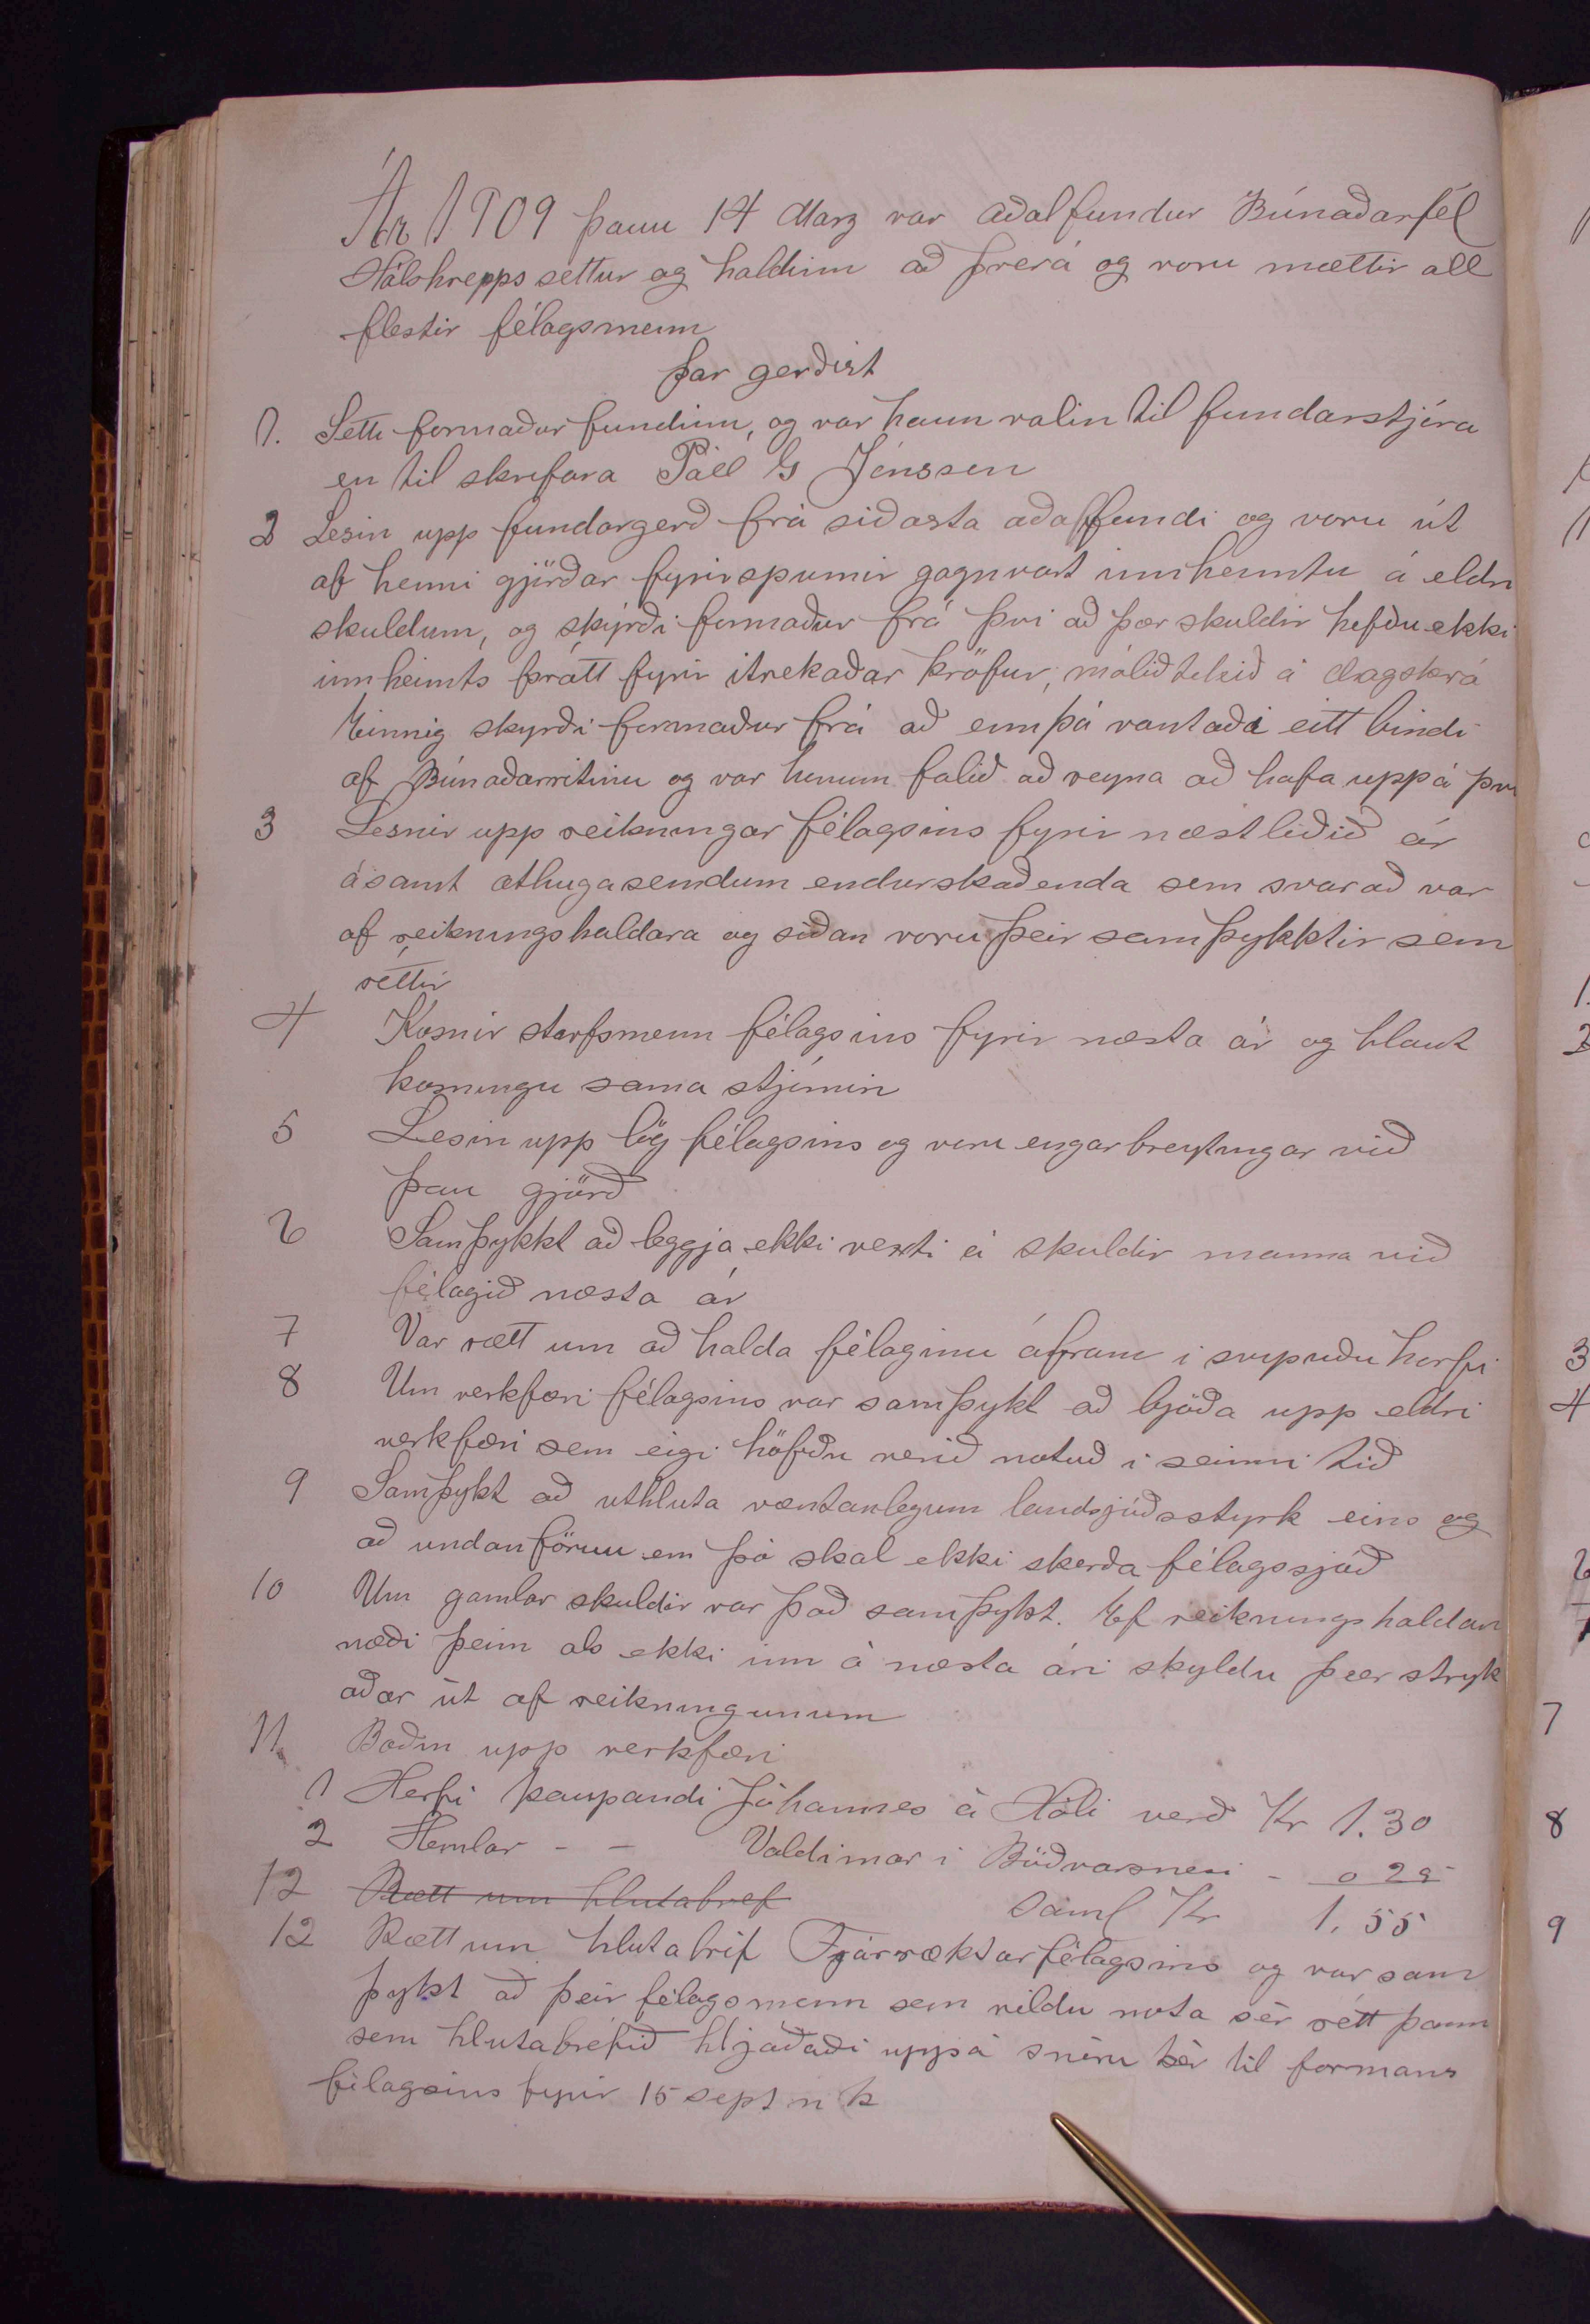 Ár 1909 þann 14 Marz var aðalfundur Búnaðarfél
Hálshrepps settur og haldinn að Þverá og voru mættir all
flestir félagsmenn
Þar gerðist
1. Setti formaður fundinn, og var hann valin til fundarstjóra
en til skrifara Páll G Jónsson
2 Lesin upp fundargerð frá siðasta aðalfundi og voru út
af henni gjörðar fyrirspurnir gagnvart innheimtu á eldri
skuldum, og skýrði formaður frá þvi að þær skuldir hefðu ekki
innheimts þrátt fyrir itrekaðar kröfur, málið tekið á dagskrá
Einnig skyrði formaður frá að ennþá vantaði eitt bindi
af Búnaðarritinu og var honum falið að reyna að hafa uppá þvi
3 Lesnir upp reikningar félagsins fyrir næstliðið ár
ásamt athugasemdum endurskoðenda sem svarað var
af reikningshaldara og siðan voru þeir samþykktir sem
réttir
4 Kosnir starfsmenn félagsins fyrir næsta ár og hlaut
kosningu sama stjórnin
5 Lesin upp lög félagsins og voru engar breytingar við
þau gjörð
6 Samþykkt að leggja ekki vexti á skuldir manna við
félagið næsta ár
7 Var rætt um að halda félaginu áfram i svipuðu horfi
8 Um verkfæri félagsins var samþykt að bjóða upp eldri
verkfæri sem eigi höfðu verið notuð i seinni tið
9 Samþykt að uthluta væntanlegum landsjóðsstyrk eins og
að undanförnu en þó skal ekki skerða félagssjóð
10 Um gamlar skuldir var það samþykt. Ef reikningshaldari
næði þeim als ekki inn á næsta ári skyldu þær stryk
aðar út af reikningunum
11. Boðin upp verkfæri
1 Herfi kaupandi Jóhannes á Hóli verð Kr 1.30
2 Hemlar - - Valdimar i Böðvarsnesi - 0 25
12 Rætt um hlutabref Saml Kr 1.55
12 Rætt um hlutabrif Fjárræktarfélagsins og var sam
þykt að þeir félagsmenn sem vildu nota sér rétt þann
sem hlutabréfið hljóðaði uppá snéru sér til formans
félagsins fyrir 15 sept n k